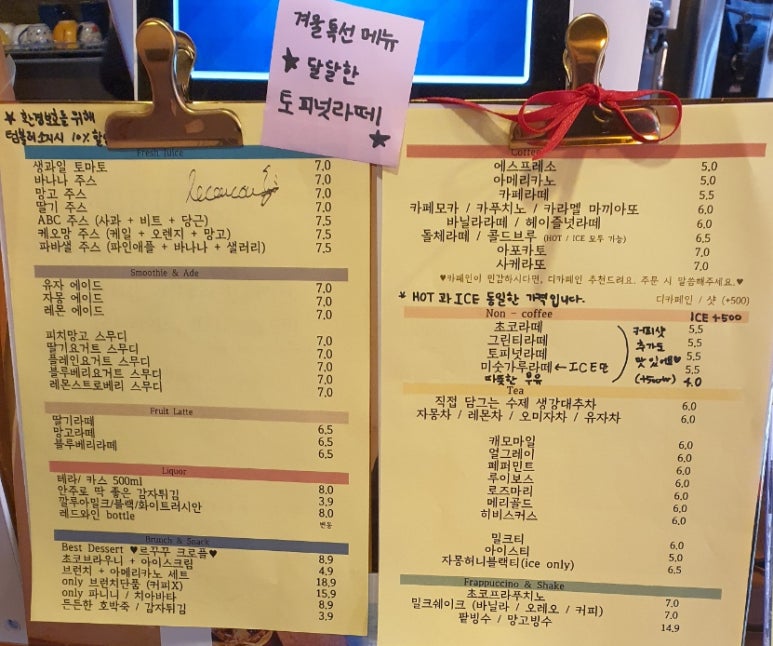 겨울 특선 메뉴
★ 달달한
토피넛라떼! ★
★ 환경보호를 위해
텀블러소지시 10% 할인
Fresh Juice
생과일 토마토 7,0
바나나 주스 7,0
망고 주스 7,0
딸기 주스 7,0
ABC 주스 (사과 + 비트 + 당근) 7,5
케오망 주스 (케일 + 오렌지 + 망고) 7,5
파바샐 주스 (파인애플 + 바나나 + 샐러리) 7,5
Smoothie & Ade
유자 에이드 7,0
자몽 에이드 7,0
레몬 에이드 7,0
피치망고 스무디 7,0
딸기요거트 스무디 7,0
플레인요거트 스무디 7,0
블루베리요거트 스무디 7,0
레몬스트로베리 스무디 7,0
Fruit Latte
딸기라떼 6,5
망고라떼 6,5
블루베리라떼 6,5
Liquor
테라/ 카스 500ml 8,0
안주로 딱 좋은 감자튀김 3,9
깔루아밀크/블랙/화이트러시안 8,0
레드와인 bottle 변동
Brunch & Snack
Best Dessert ♥르꾸꾸 크로플♥ 8,9
초코브라우니 + 아이스크림 4,9
브런치 + 아메리카노 세트 18,9
only 브런치단품 (커피X) 15,9
only 파니니 / 치아바타 8,9
든든한 호박죽 / 감자튀김 3,9
Coffee
에스프레소 5,0
아메리카노 5,0
카페라떼 5,5
카페모카 / 카푸치노 / 카라멜 마끼아또 6,0
바닐라라떼 / 헤이즐넛라떼 6,0
돌체라떼 / 콜드브루 (HOT / ICE 모두 가능) 6,5
아포카토 7,0
사케라또 7,0
♥카페인이 민감하시다면, 디카페인 추천드려요. 주문 시 말씀해주세요.♥
★ HOT 과 ICE 동일한 가격입니다. 디카페인 / 샷 (+500)
Non - coffee ICE +500
초코라떼 5,5
그린티라떼 5,5
토피넛라떼 5,5
미숫가루라떼 ← ICE만 5,5
따뜻한 우유 4,0
커피샷
추가도
맛있어요♥
(+500₩)
Tea
직접 담그는 수제 생강대추차 6,0
자몽차 / 레몬차 / 오미자차 / 유자차 6,0
캐모마일 6,0
얼그레이 6,0
페퍼민트 6,0
루이보스 6,0
로즈마리 6,0
메리골드 6,0
히비스커스 6,0
밀크티 6,0
아이스티 5,0
자몽허니블랙티(ice only) 6,5
Frappuccino & Shake
초코프라푸치노 7,0
밀크쉐이크 (바닐라 / 오레오 / 커피) 7,0
팥빙수 / 망고빙수 14,9